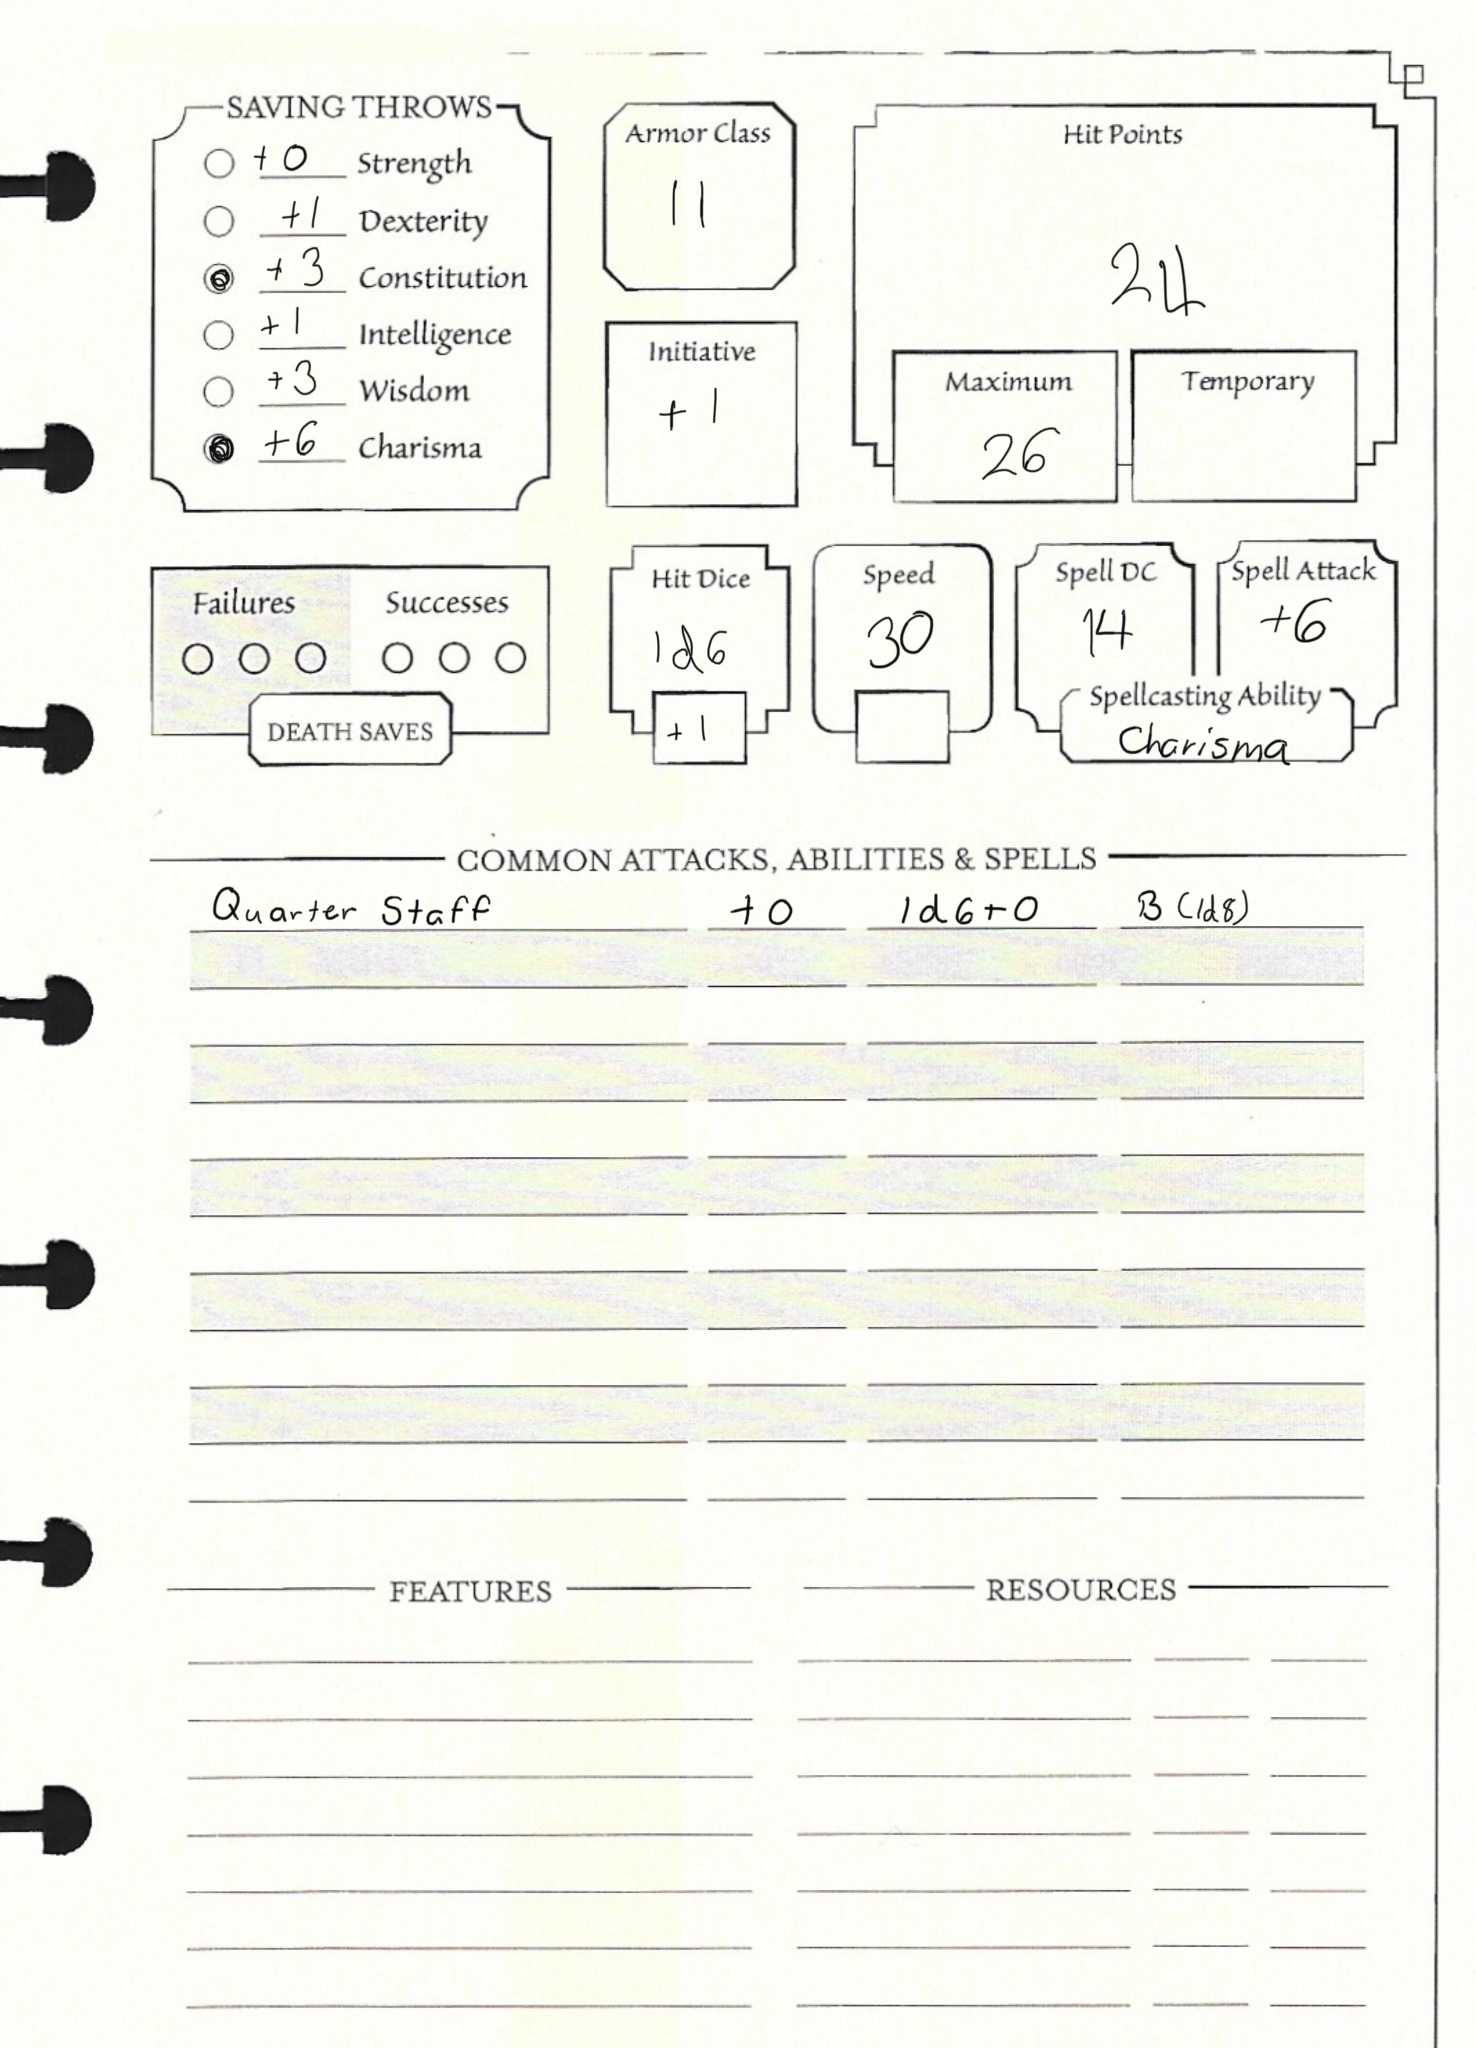 SAVING THROWS
+0 Strength
+1 Dexterity
+3 Constitution
+1 Intelligence
+3 Wisdom
+6 Charisma
Armor Class
11
Initiative
+1
Hit Points
24
Maximum
26
Temporary
Failures
Successes
DEATH SAVES
Hit Dice
1d6
+1
Speed
30
Spell DC
14
Spell Attack
+6
Spellcasting Ability
Charisma
COMMON ATTACKS, ABILITIES & SPELLS
Quarter Staff +0 1d6+0 B (1d8)
FEATURES
RESOURCES